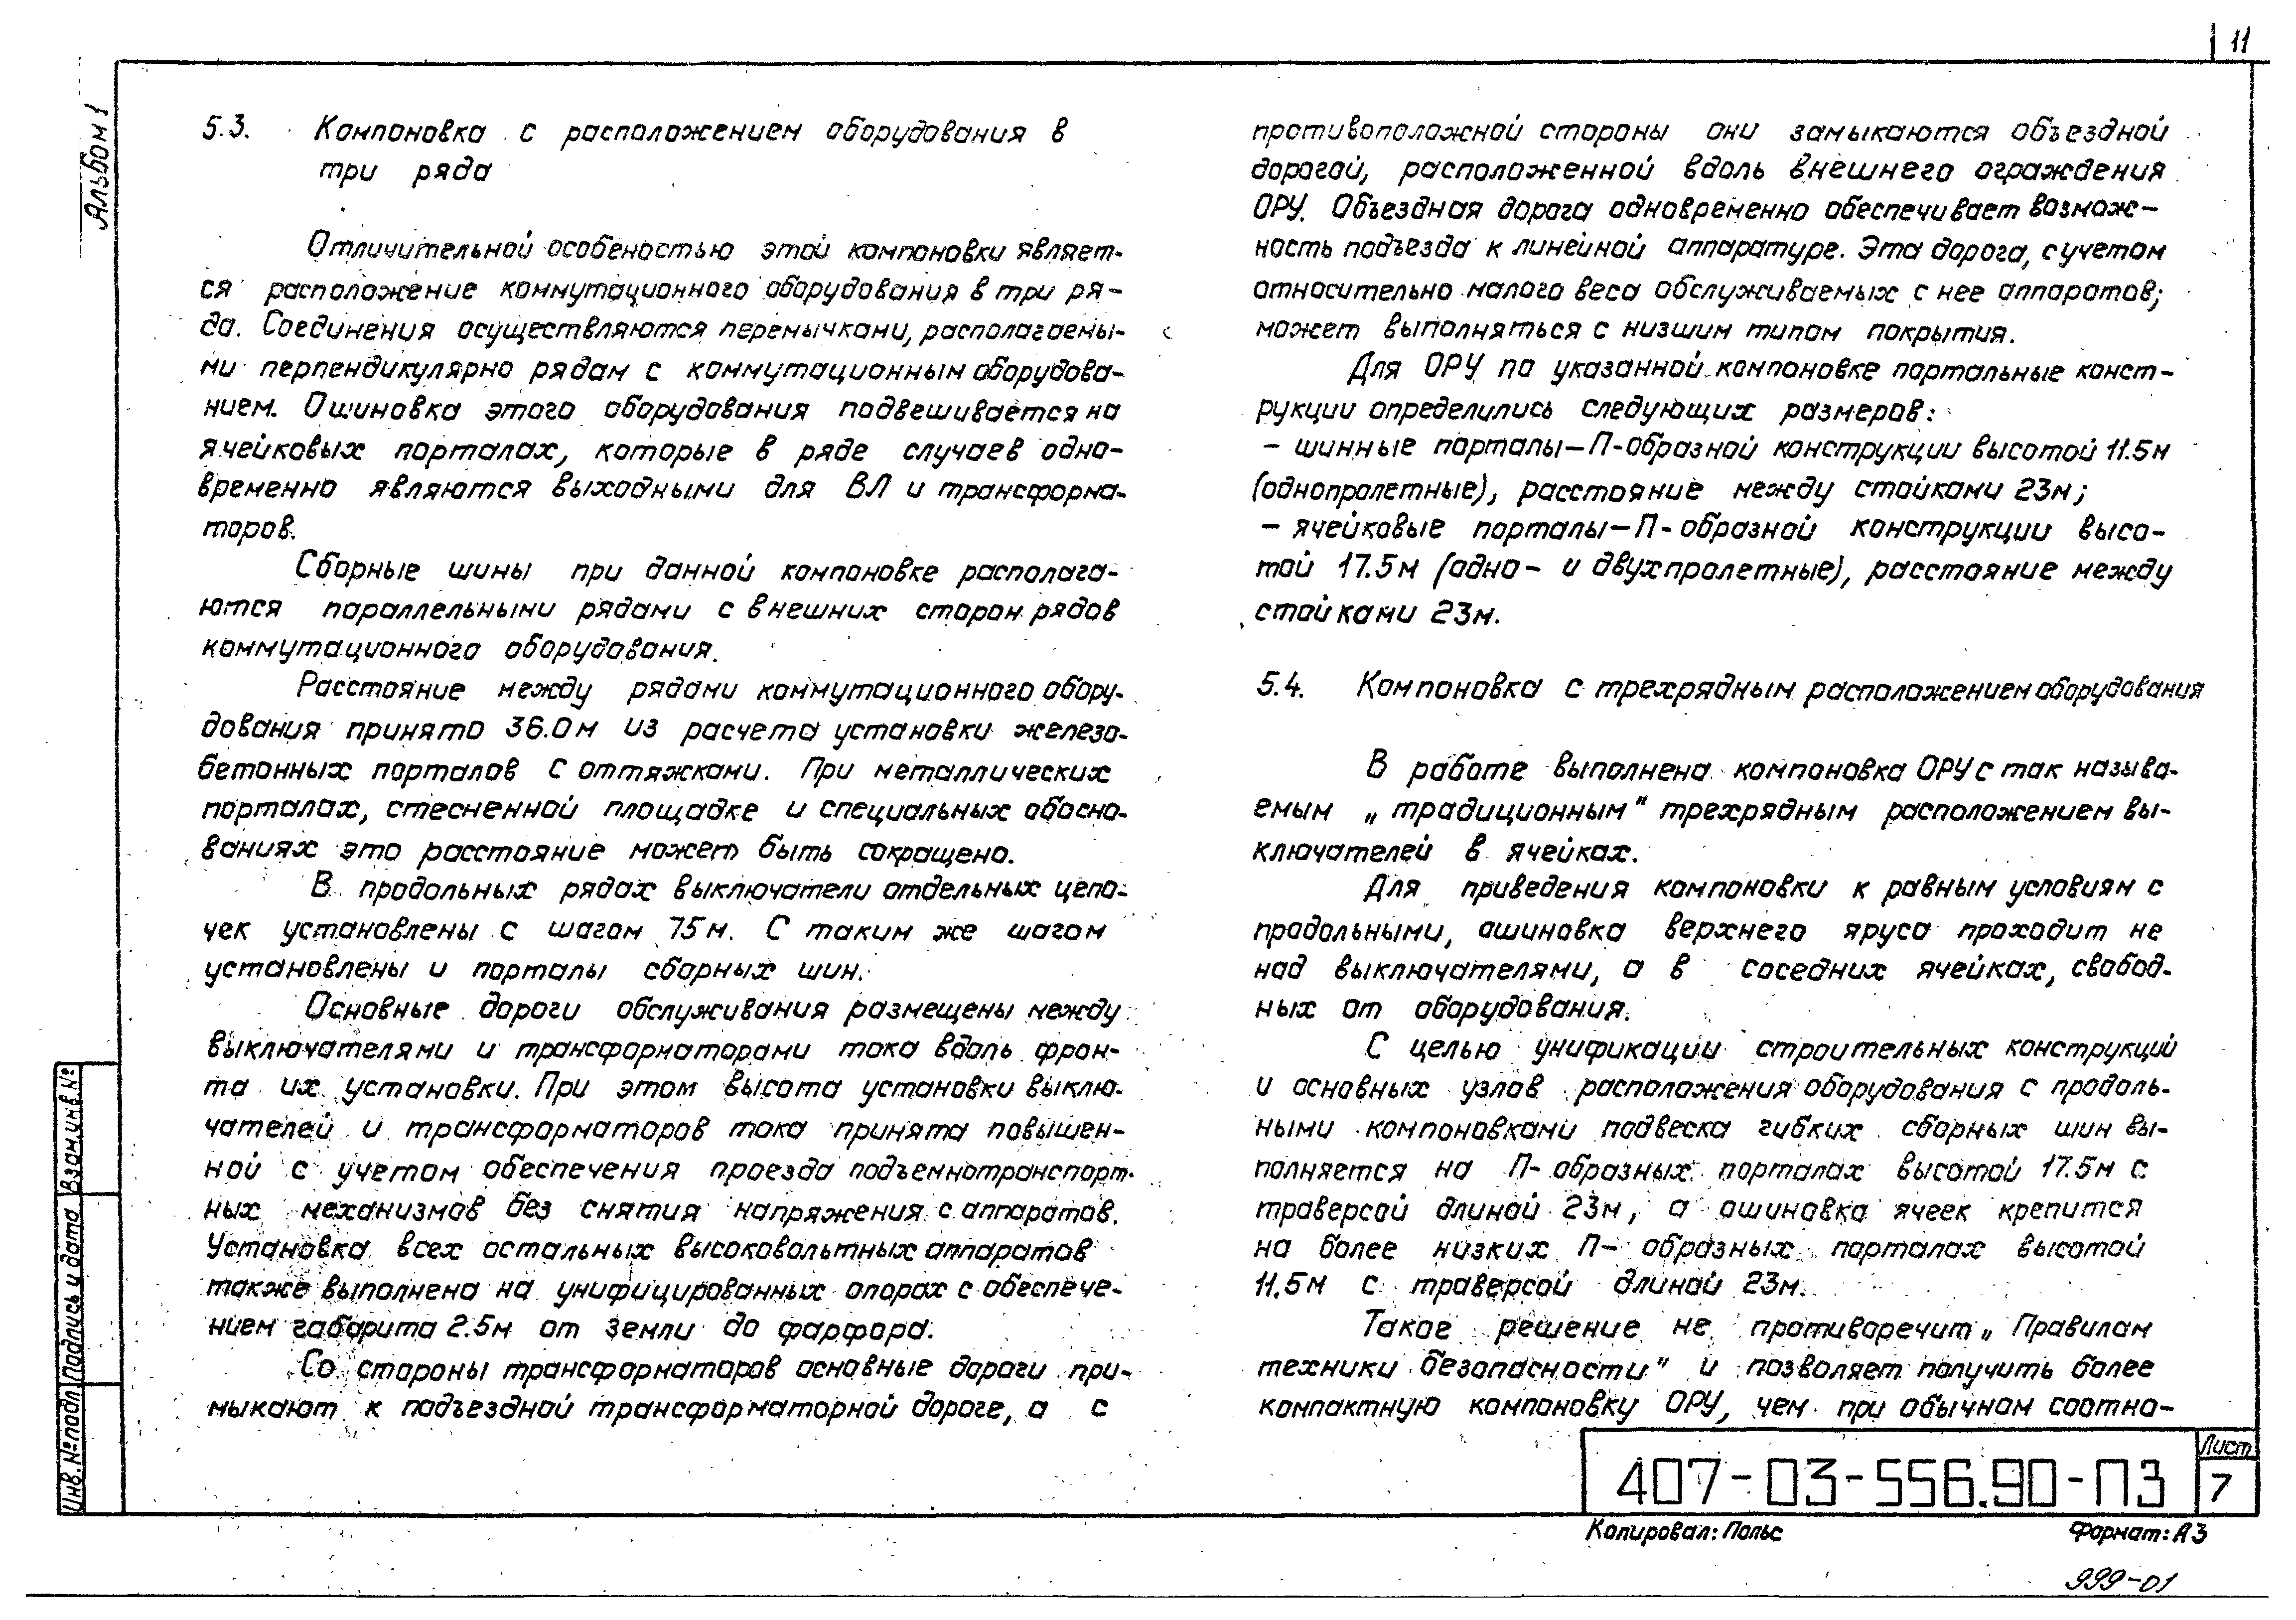 11
Альбом 1
5.3. Компоновка с расположением оборудования в
три ряда
Отличительной особеностью этой компоновки являет-
ся расположение коммутационного оборудования в три ря-
да. Соединения осуществляются перемычками, располагаемы-
ми перпендикулярно рядам с коммутационным оборудова-
нием. Ошиновка этого оборудования подвешивается на
ячейковых порталах, которые в ряде случаев одно-
временно являются выходными для ВЛ и трансформа-
торов.
Сборные шины при данной компоновке располага-
ются параллельными рядами с внешних сторон рядов
коммутационного оборудования.
Расстояние между рядами коммутационного обору-
дования принято 36.0м из расчета установки железо-
бетонных порталов с оттяжками. При металлических
порталах, стесненной площадке и специальных обосно-
ваниях это расстояние может быть сокращено.
В продольных рядах выключатели отдельных цепо-
чек установлены с шагом 75м. С таким же шагом
установлены и порталы сборных шин.
Основные дороги обслуживания размещены между
выключателями и трансформаторами тока вдоль фрон-
та их установки. При этом высота установки выклю-
чателей и трансформаторов тока принята повышен-
ной с учетом обеспечения проезда подъемнотранспорт-
ных механизмов без снятия напряжения с аппаратов.
Установка всех остальных высоковольтных аппаратов
также выполнена на унифицированных опорах с обеспече-
нием габарита 2.5м от земли до фарфора.
Со стороны трансформаторов основные дороги при-
мыкают к подъездной трансформаторной дороге, а с
противоположной стороны они замыкаются объездной
дорогой, расположенной вдоль внешнего ограждения
ОРУ. Объездная дорога одновременно обеспечивает возмож-
ность подъезда к линейной аппаратуре. Эта дорога, с учетом
относительно малого веса обслуживаемых с нее аппаратов,
может выполняться с низшим типом покрытия.
Для ОРУ по указанной компоновке портальные конст-
рукции определились следующих размеров:
- шинные порталы-П-образной конструкции высотой 11.5м
(однопролетные), расстояние между стойками 23м;
- ячейковые порталы-П-образной конструкции высо-
той 17.5м (одно- и двухпролетные), расстояние между
стойками 23м.
5.4. Компоновка с трехрядным расположением оборудования
В работе выполнена компоновка ОРУ с так называ-
емым „традиционным" трехрядным расположением вы-
ключателей в ячейках.
Для приведения компоновки к равным условиям с
продольными, ошиновка верхнего яруса проходит не
над выключателями, а в соседних ячейках, свобод-
ных от оборудования.
С целью унификации строительных конструкций
и основных узлов расположения оборудования с продоль-
ными компоновками подвеска гибких сборных шин вы-
полняется на П-образных порталах высотой 17.5м с
траверсой длиной 23м, а ошиновка ячеек крепится
на более низких П-образных порталах высотой
11.5м с траверсой длиной 23м.
Такое решение не противоречит „Правилам
техники безопасности" и позволяет получить более
компактную компоновку ОРУ, чем при обычном соотно-
Инв.№подл Подпись и дата Взам.инв.№
407-03-556.90-ПЗ
Лист
7
Копировал: Польс Формат: А3
999-01